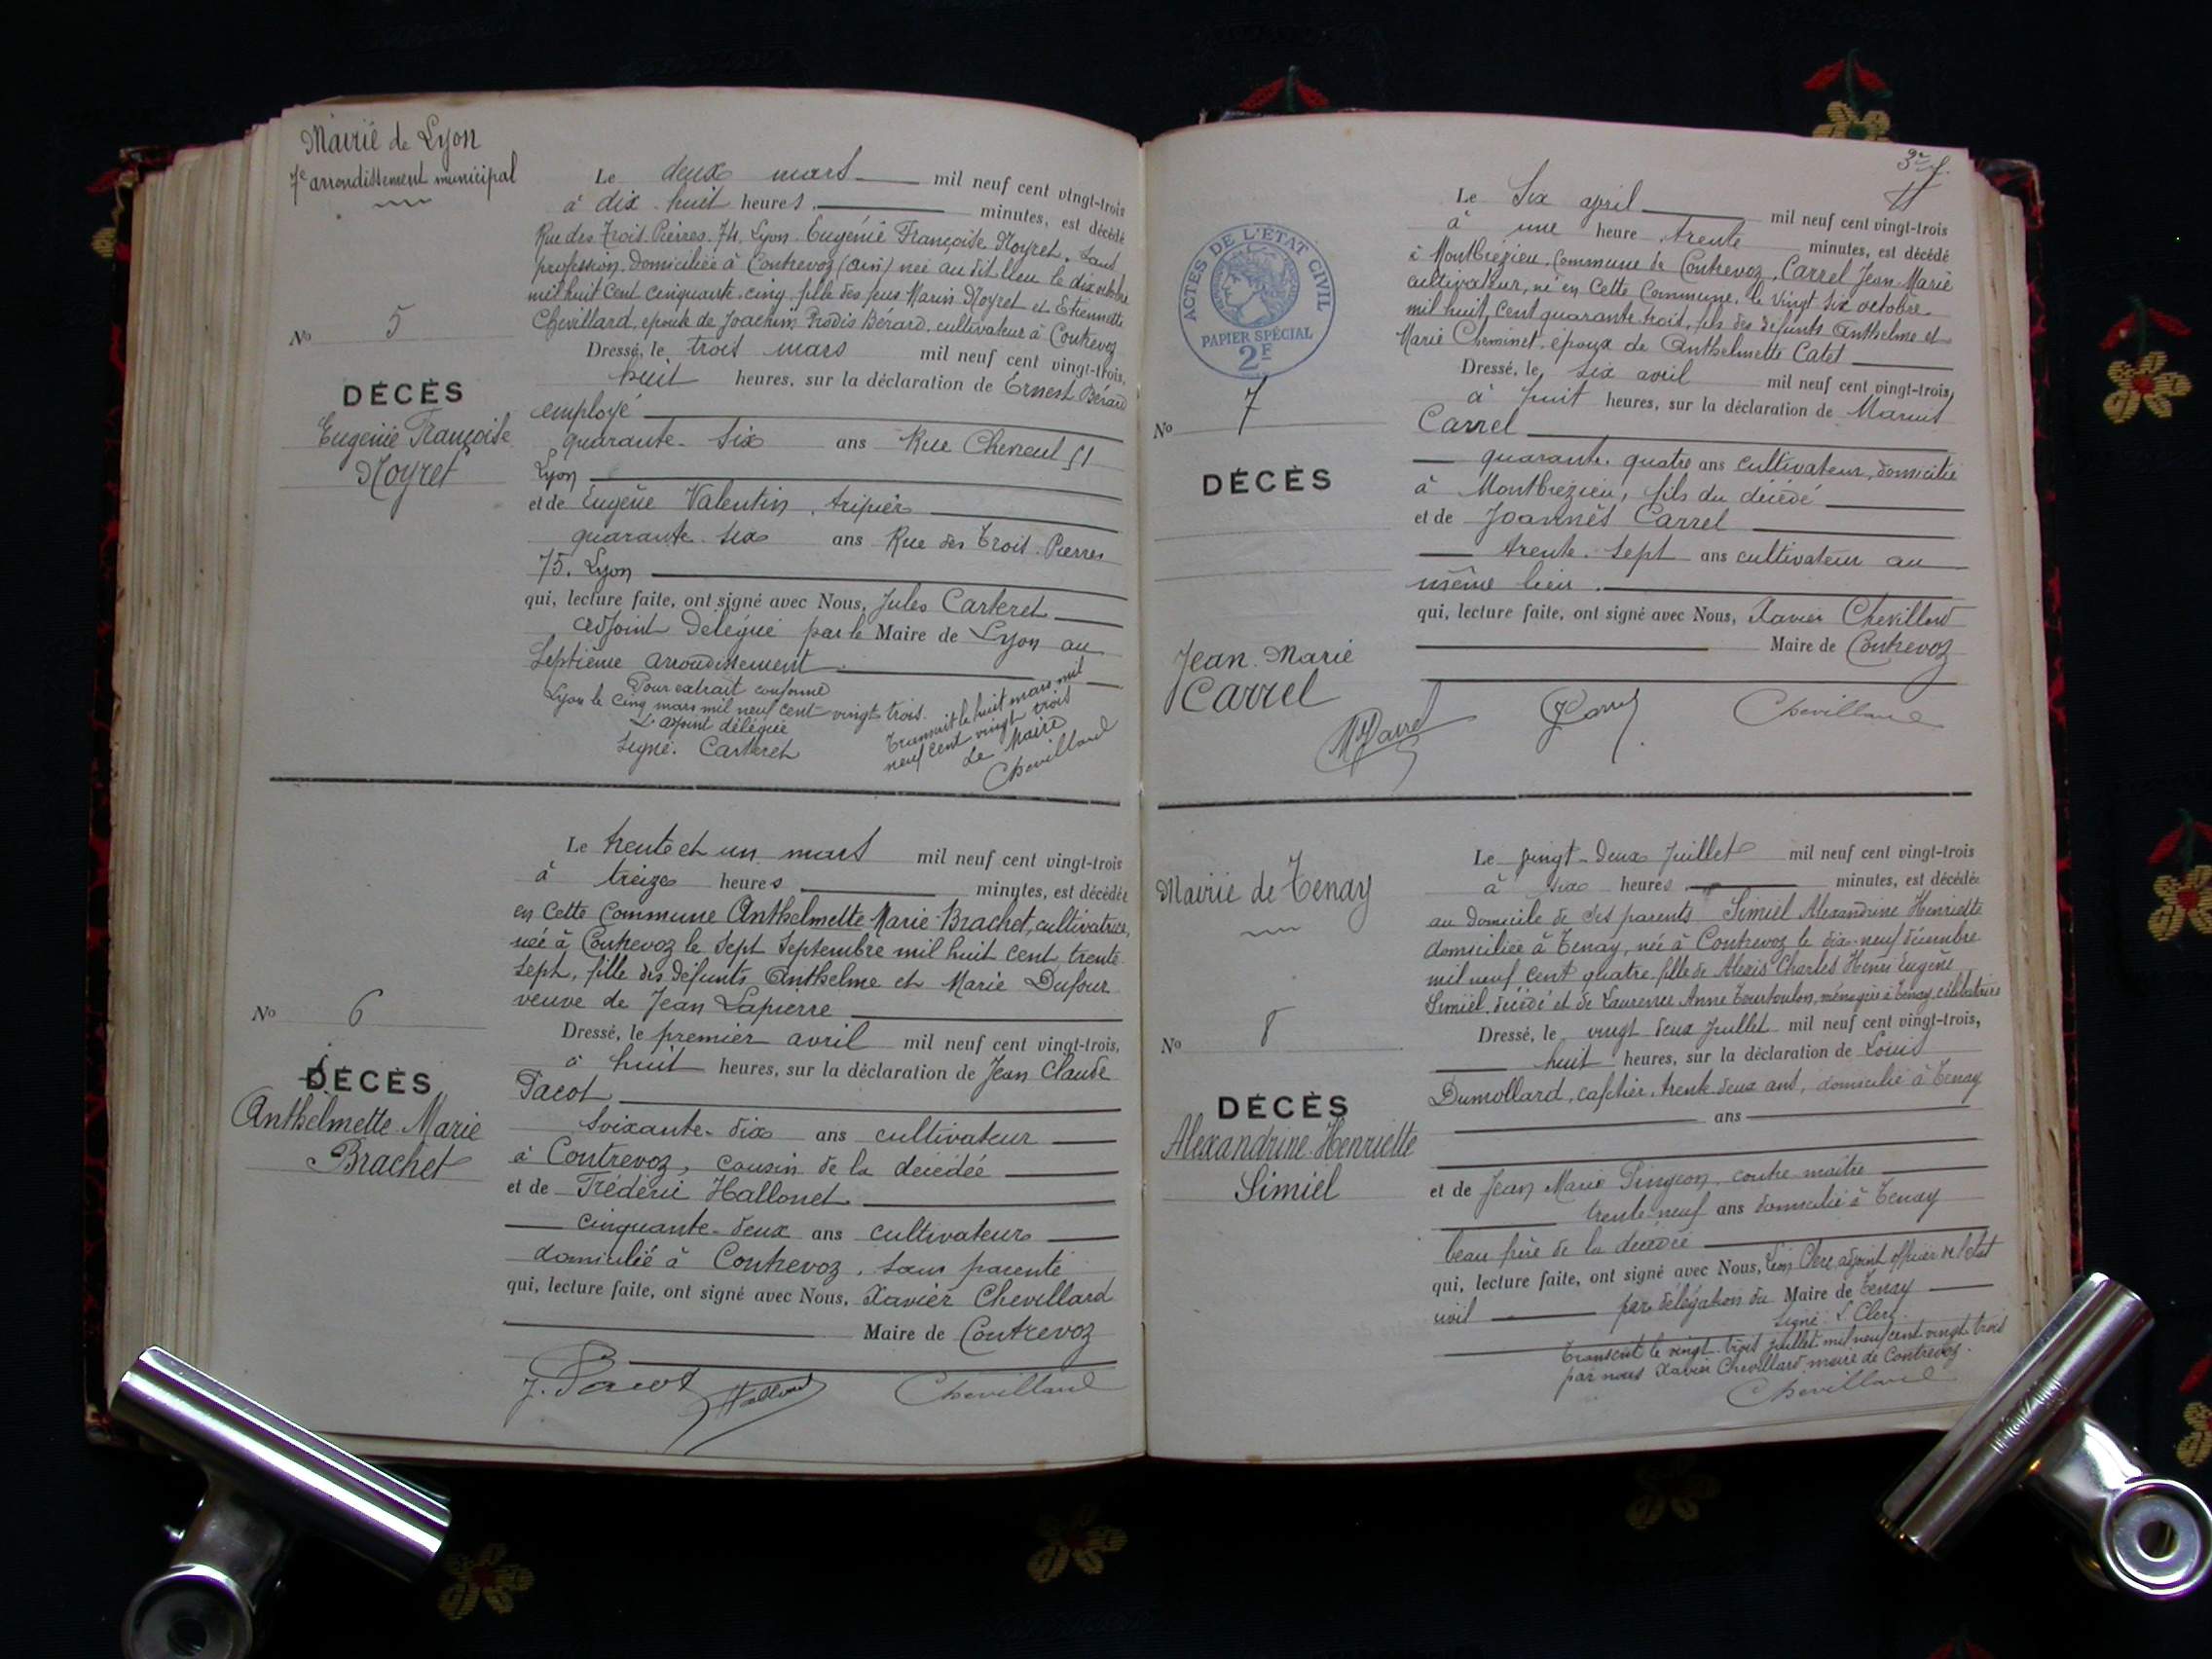 Mairie de Lyon
7e arrondissement municipal
Le deux mars mil neuf cent vingt-trois
à dix huit heures minutes, est décédé
Rue des Trois Pierres. 74. Lyon. Eugénie Françoise Noyret. Sans
profession. domiciliée à Contrevoz (Ain) née au dit lieu le dix octobre
mil huit cent cinquante cinq. fille des feus Marin Noyret et Etiennette
Chevillard, épouse de Joachim Bérard, cultivateur à Contrevoz
No 5
Dressé, le trois mars mil neuf cent vingt-trois,
huit heures, sur la déclaration de Ernest Bérard
DÉCÈS
Eugénie Françoise
Noyret
employé
quarante-six ans Rue Chevreul 51
Lyon
et de Eugène Valentin, tripier
quarante six ans Rue des Trois Pierres
75. Lyon
qui, lecture faite, ont signé avec Nous, Jules Carteret
adjoint délégué par le Maire de Lyon au
Septième arrondissement
Pour extrait conforme
Lyon le cinq mars mil neuf cent vingt trois.
L'adjoint délégué
Signé. Carteret
Transcrit le huit mars mil
neuf cent vingt trois
Le Maire
Chevillard
Le trente et un mars mil neuf cent vingt-trois
à treize heures minutes, est décédée
en cette commune Anthelmette Marie Brachet, cultivatrice,
née à Contrevoz le sept septembre mil huit cent trente
sept, fille des défunts Anthelme et Marie Dufour
veuve de Jean Lapierre
No 6
Dressé, le premier avril mil neuf cent vingt-trois,
à huit heures, sur la déclaration de Jean Claude
DÉCÈS
Anthelmette Marie
Brachet
Pacot
soixante-dix ans cultivateur
à Contrevoz, cousin de la décédée
et de Frédéric Hallonet
cinquante-deux ans cultivateur
domicilié à Contrevoz. sans parenté
qui, lecture faite, ont signé avec Nous, Xavier Chevillard
Maire de Contrevoz
J. Pacot Hallonet Chevillard
3e f.
Le Six april mil neuf cent vingt-trois
à une heure trente minutes, est décédé
à Montbrézieu. commune de Contrevoz, Carrel Jean-Marie
cultivateur, né en cette commune, le vingt six octobre
mil huit cent quarante trois, fils des défunts Anthelme et
Marie Cheminet. époux de Anthelmette Catet
ACTES DE L'ÉTAT CIVIL
PAPIER SPÉCIAL
2F
No 7
Dressé, le six avril mil neuf cent vingt-trois,
à huit heures, sur la déclaration de Marius
Carrel
DÉCÈS
quarante. quatre ans cultivateur, domicilié
à Montbrézieu, fils du décédé
et de Joannès Carrel
trente. sept ans cultivateur au
même lieu.
qui, lecture faite, ont signé avec Nous, Xavier Chevillard
Maire de Contrevoz
Jean. Marie
Carrel
M Carrel J Carrel Chevillard
Mairie de Tenay
Le vingt-deux Juillet mil neuf cent vingt-trois
à six heures minutes, est décédée
au domicile de ses parents Simiel Alexandrine Henriette
domiciliée à Tenay, née à Contrevoz le dix-neuf décembre
mil neuf cent quatre. fille de Alexis Charles Henri Eugène
Simiel, décédé et de Laurence Anne Tourtoulon, ménagère à Tenay, célibataire
No 8
Dressé, le vingt deux Juillet mil neuf cent vingt-trois,
huit heures, sur la déclaration de Louis
DÉCÈS
Alexandrine Henriette
Simiel
Dumollard, cafetier, trente deux ans, domicilié à Tenay
ans
et de Jean Marie Pingeon, contre maître
trente-neuf ans domicilié à Tenay
beau frère de la décédée
qui, lecture faite, ont signé avec Nous, Léon Clerc, adjoint officier de l'état
civil par délégation du Maire de Tenay
signé L Clerc.
Transcrit le vingt-trois juillet mil neuf cent vingt trois
par nous Xavier Chevillard maire de Contrevoz.
Chevillard